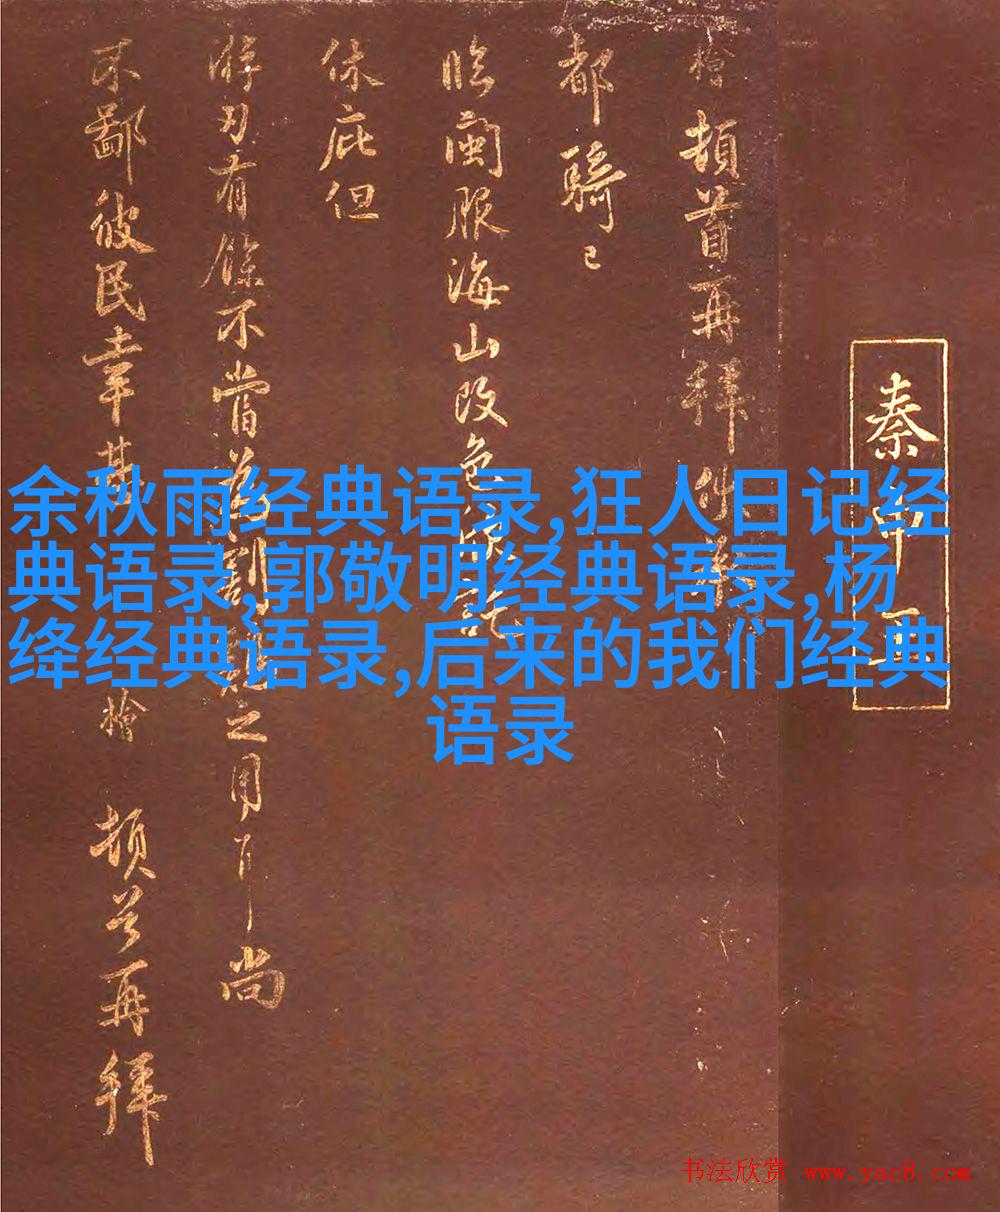 秦申王
檜頓首再拜
都騎已
臨闽服海山改色
休庇但
游刃有餘不當為劇
之用下尚
不鄙彼民幸甚
檜
頓首再拜
余秋雨经典语录,狂人日记经
典语录,郭敬明经典语录,杨
绛经典语录,后来的我们经典
语录
书法欣赏 www.yac8.com